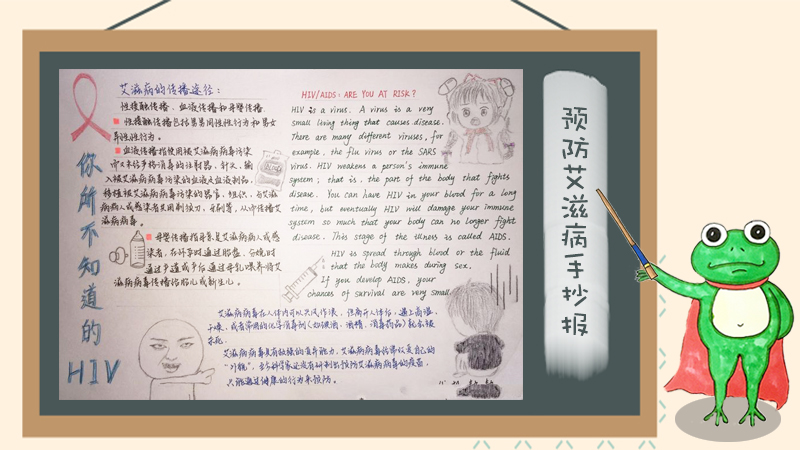 艾滋病的传播途径:
性接触传播、血液传播和母婴传播
性接触传播包括男男同性性行为和男女
异性性行为。
血液传播指使用被艾滋病病毒污染
而又未经严格消毒的注射器、针头、输
入被艾滋病病毒污染的血液及血液制品,
移植被艾滋病病毒污染的器官、组织,与艾滋
病病人或感染者共用剃须刀、牙刷等,从而传播艾
滋病病毒。
母婴传播指母亲是艾滋病病人或感
染者,在怀孕时通过胎盘、分娩时
通过产道或产后通过母乳喂养将艾
滋病病毒传播给胎儿或新生儿。
你所不知道的
HIV
HIV/AIDS: ARE YOU AT RISK?
HIV is a virus. A virus is a very
small living thing that causes disease.
There are many different viruses, for
example, the flu virus or the SARS
virus. HIV weakens a person's immune
system; that is, the part of the body that fights
disease. You can have HIV in your blood for a long
time, but eventually HIV will damage your immune
system so much that your body can no longer fight
disease. This stage of the illness is called AIDS.
HIV is spread through blood or the fluid
that the body makes during sex.
If you develop AIDS, your
chances of survival are very small.
艾滋病病毒在人体内可以
但离开人体后,遇上高温、
干燥,或者常用的化学消毒剂
酒精、消毒药品
艾滋病病毒具有
艾滋病病毒
改变自己的
"外貌",
科学家还没有研制出预防艾滋病病毒的疫苗,
只能通过健康的行为来预防。
预防艾滋病手抄报